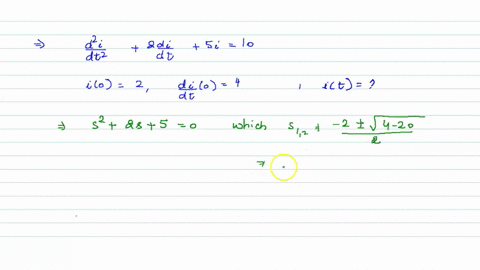 ⇒ d²i/dt² + 2di/dt + 5i = 10
i(0) = 2, di/dt(0) = 4 , i(t) = ?
⇒ s² + 2s + 5 = 0 which s₁,₂ = (-2 ± √(4-20))/2
⇒